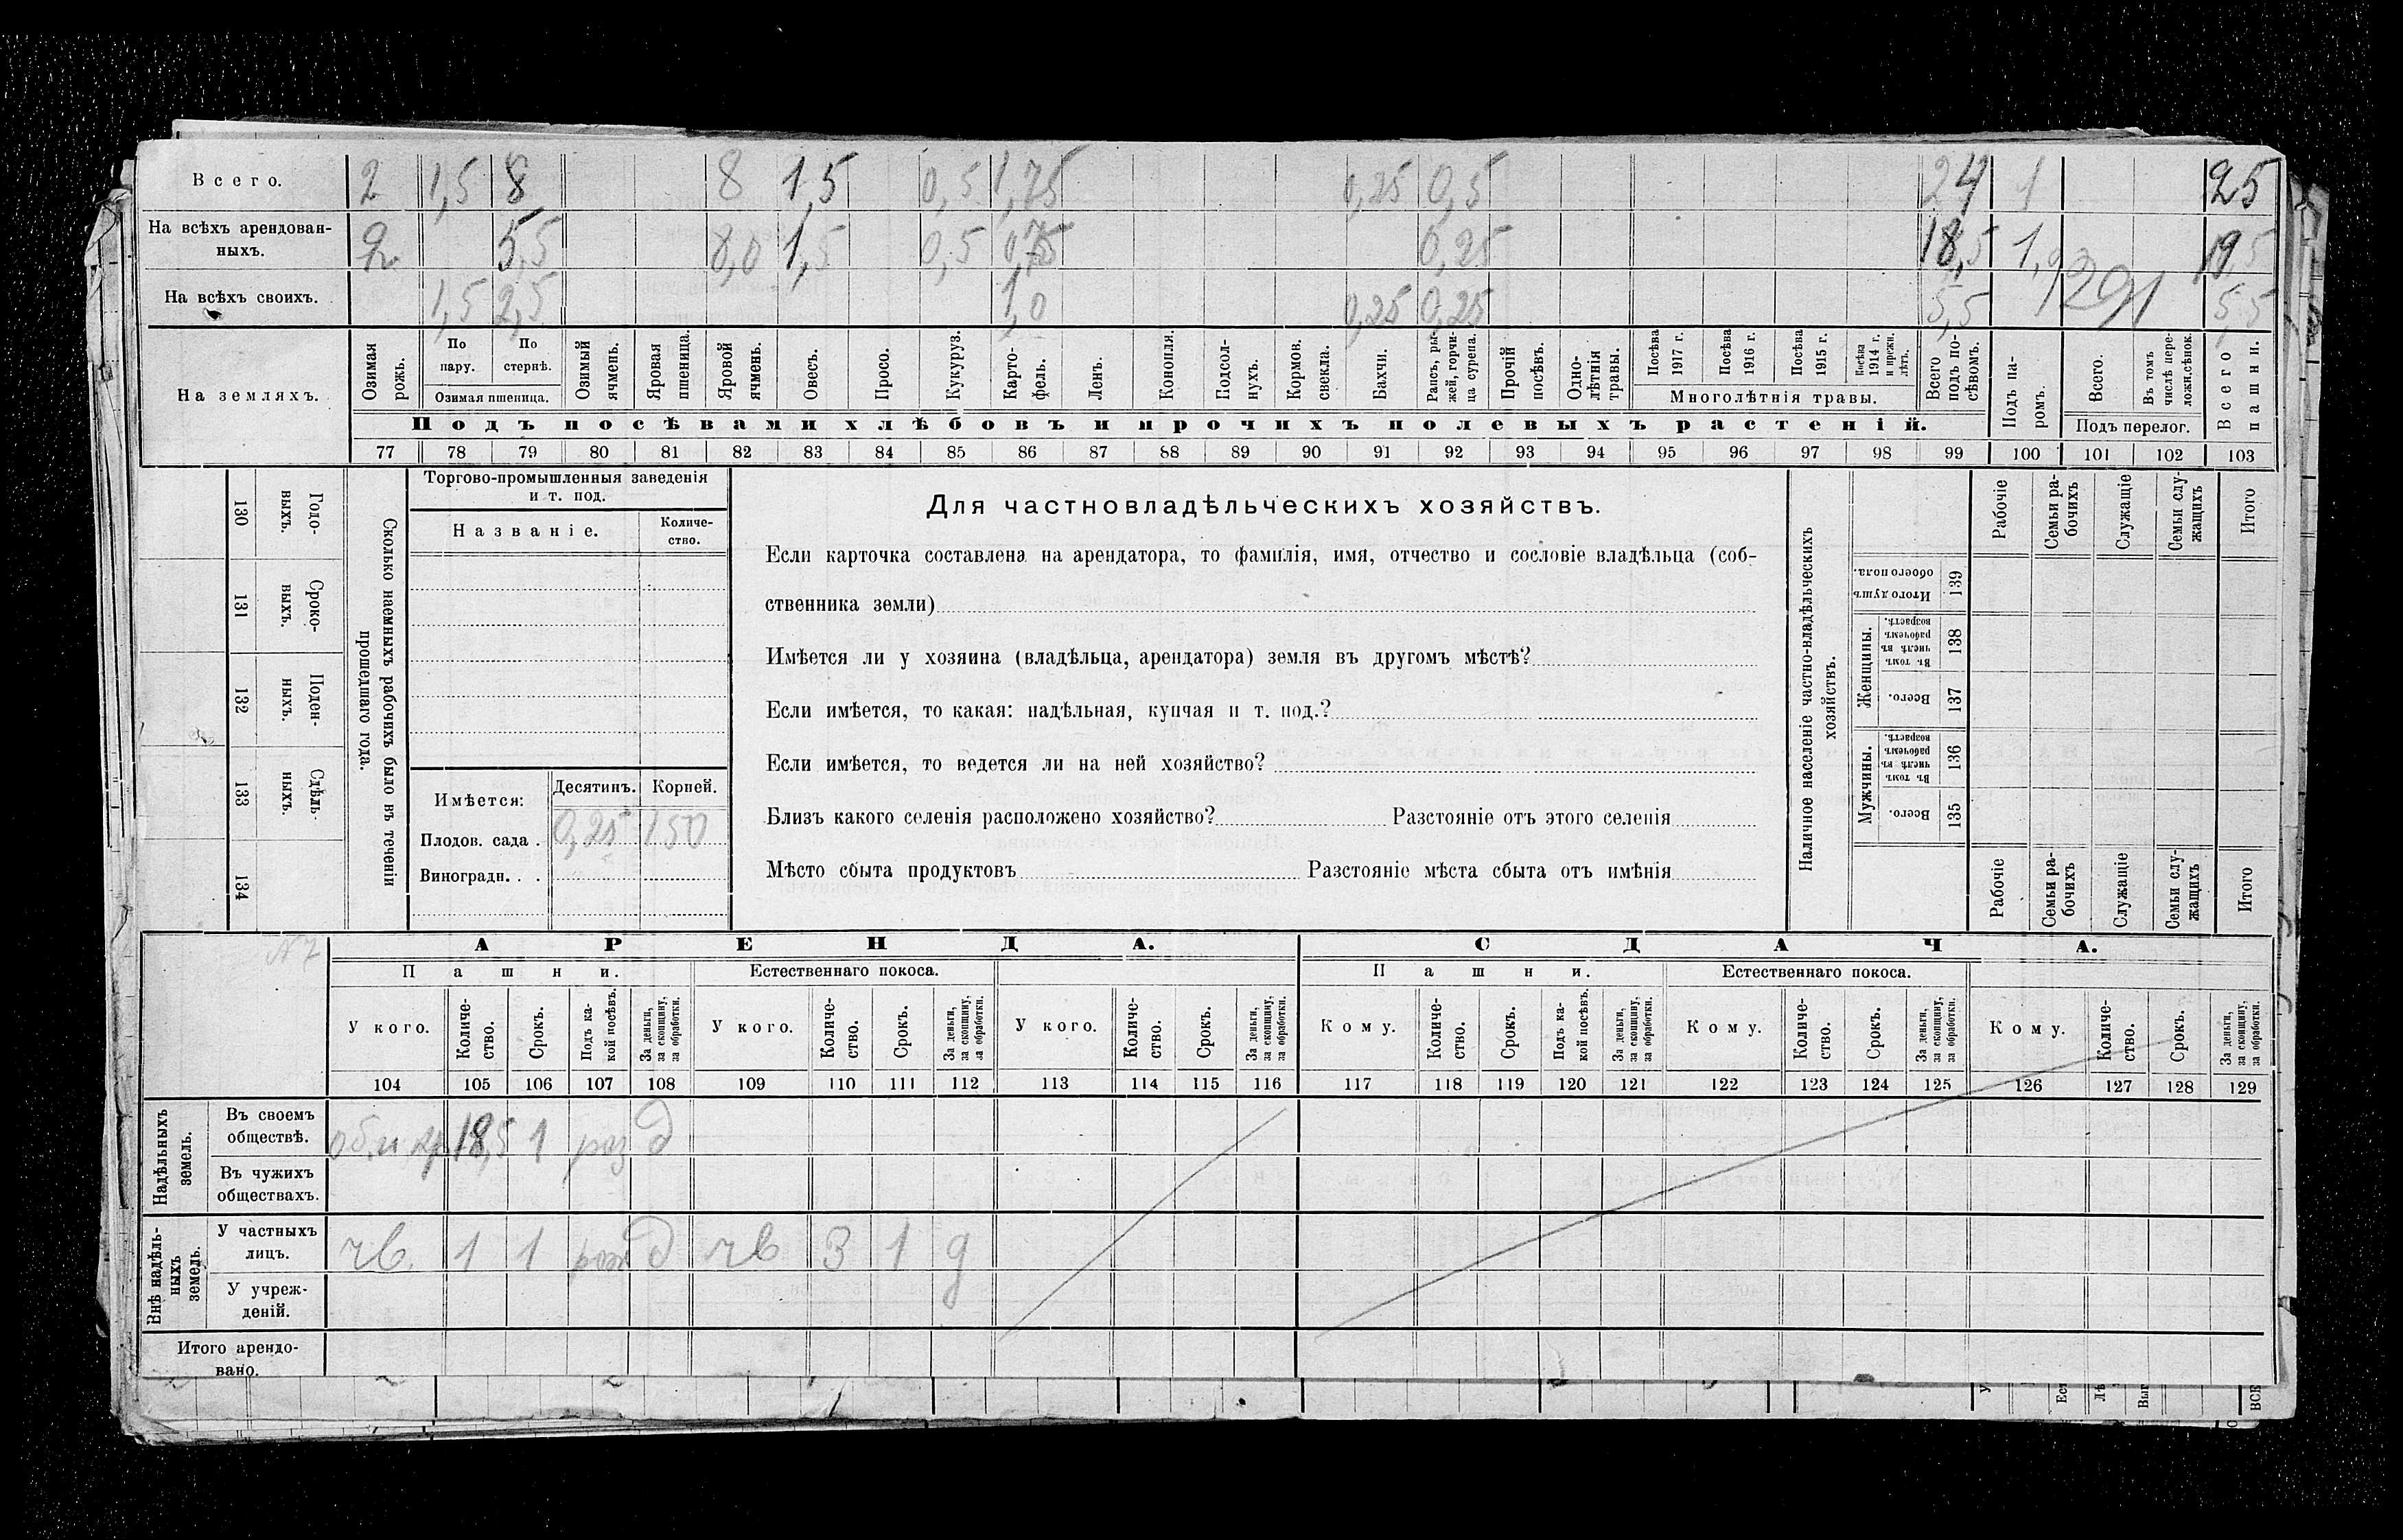 Всего. 2 1,5 8 8 1,5 0,5 1,75 0,25 0,5 24 1 25
На всѣхъ арендован-
ныхъ. 2 5,5 8,0 1,5 0,5 0,75 0,25 18,5 1, 19,5
На всѣхъ своихъ. 1,5 2,5 1,0 0,25 0,25 5,5 5,5
На земляхъ.
Озимая рожь.
По пару.
По стернѣ.
Озимая пшеница.
Озимый ячмень.
Яровая пшеница.
Яровой ячмень.
Овесъ.
Просо.
Кукуруз.
Карто-
фель.
Ленъ.
Конопля.
Подсол-
нухъ.
Кормов. свекла.
Бахчи.
Рапсъ, ры-
жей, горчи-
ца сурепа.
Прочій посѣвъ.
Одно-
лѣтнія травы.
Посѣва 1917 г.
Посѣва 1916 г.
Посѣва 1915 г.
Посѣва 1914 г. и прежн. лѣтъ.
Многолѣтнія травы.
Всего подъ по-
сѣвомъ.
Подъ па-
ромъ.
Всего.
Въ томъ числѣ пере-
ложн. сѣнок.
Подъ перелог.
Всего пашни.
Подъ посѣвами хлѣбовъ и прочихъ полевыхъ растеній.
77 78 79 80 81 82 83 84 85 86 87 88 89 90 91 92 93 94 95 96 97 98 99 100 101 102 103
130 Годо-
выхъ.
131 Сроко-
выхъ.
132 Поден-
ныхъ.
133 Сдѣль-
ныхъ.
134
Сколько наемныхъ рабочихъ было въ теченіи
прошедшаго года.
Торгово-промышленныя заведенія
и т. под.
Названіе.
Количе-
ство.
Имѣется: Десятинъ. Корней.
Плодов. сада . 0,25 150
Виноградн. . .
Для частновладѣльческихъ хозяйствъ.
Если карточка составлена на арендатора, то фамилія, имя, отчество и сословіе владѣльца (соб-
ственника земли)
Имѣется ли у хозяина (владѣльца, арендатора) земля въ другомъ мѣстѣ?
Если имѣется, то какая: надѣльная, купчая и т. под.?
Если имѣется, то ведется ли на ней хозяйство?
Близъ какого селенія расположено хозяйство? Разстояніе отъ этого селенія
Мѣсто сбыта продуктовъ Разстояніе мѣста сбыта отъ имѣнія
Наличное населеніе частно-владѣльческихъ
хозяйствъ.
Рабочіе
Семьи ра-
бочихъ
Служащіе
Семьи слу-
жащихъ
Итого
Итого душъ обоего пола. 139
Женщины.
Въ томъ числѣ въ рабочемъ возрастѣ. 138
Всего. 137
Мужчины.
Въ томъ числѣ въ рабочемъ возрастѣ. 136
Всего. 135
Рабочіе
Семьи ра-
бочихъ
Служащіе
Семьи слу-
жащихъ
Итого
N 7
АРЕНДА. СДАЧА.
Пашни. Естественнаго покоса. Пашни. Естественнаго покоса.
У кого.
Количе-
ство.
Срокъ.
Подъ ка-
кой посѣвъ.
За деньги,
за скопщину,
за обработки.
У кого.
Количе-
ство.
Срокъ.
За деньги,
за скопщину,
за обработки.
У кого.
Количе-
ство.
Срокъ.
За деньги,
за скопщину,
за обработки.
Кому.
Количе-
ство.
Срокъ.
Подъ ка-
кой посѣвъ.
За деньги,
за скопщину,
за обработки.
Кому.
Количе-
ство.
Срокъ.
За деньги,
за скопщину,
за обработки.
Кому.
Количе-
ство.
Срокъ.
За деньги,
за скопщину,
за обработки.
104 105 106 107 108 109 110 111 112 113 114 115 116 117 118 119 120 121 122 123 124 125 126 127 128 129
Надѣльныхъ
земель.
Въ своемъ
обществѣ. 18,5 1 раз д
Въ чужихъ
обществахъ.
Внѣ надѣль-
ныхъ
земель.
У частныхъ
лицъ. чв. 1 1 д чв 3 1 д
У учреж-
деній.
Итого арендо-
вано.